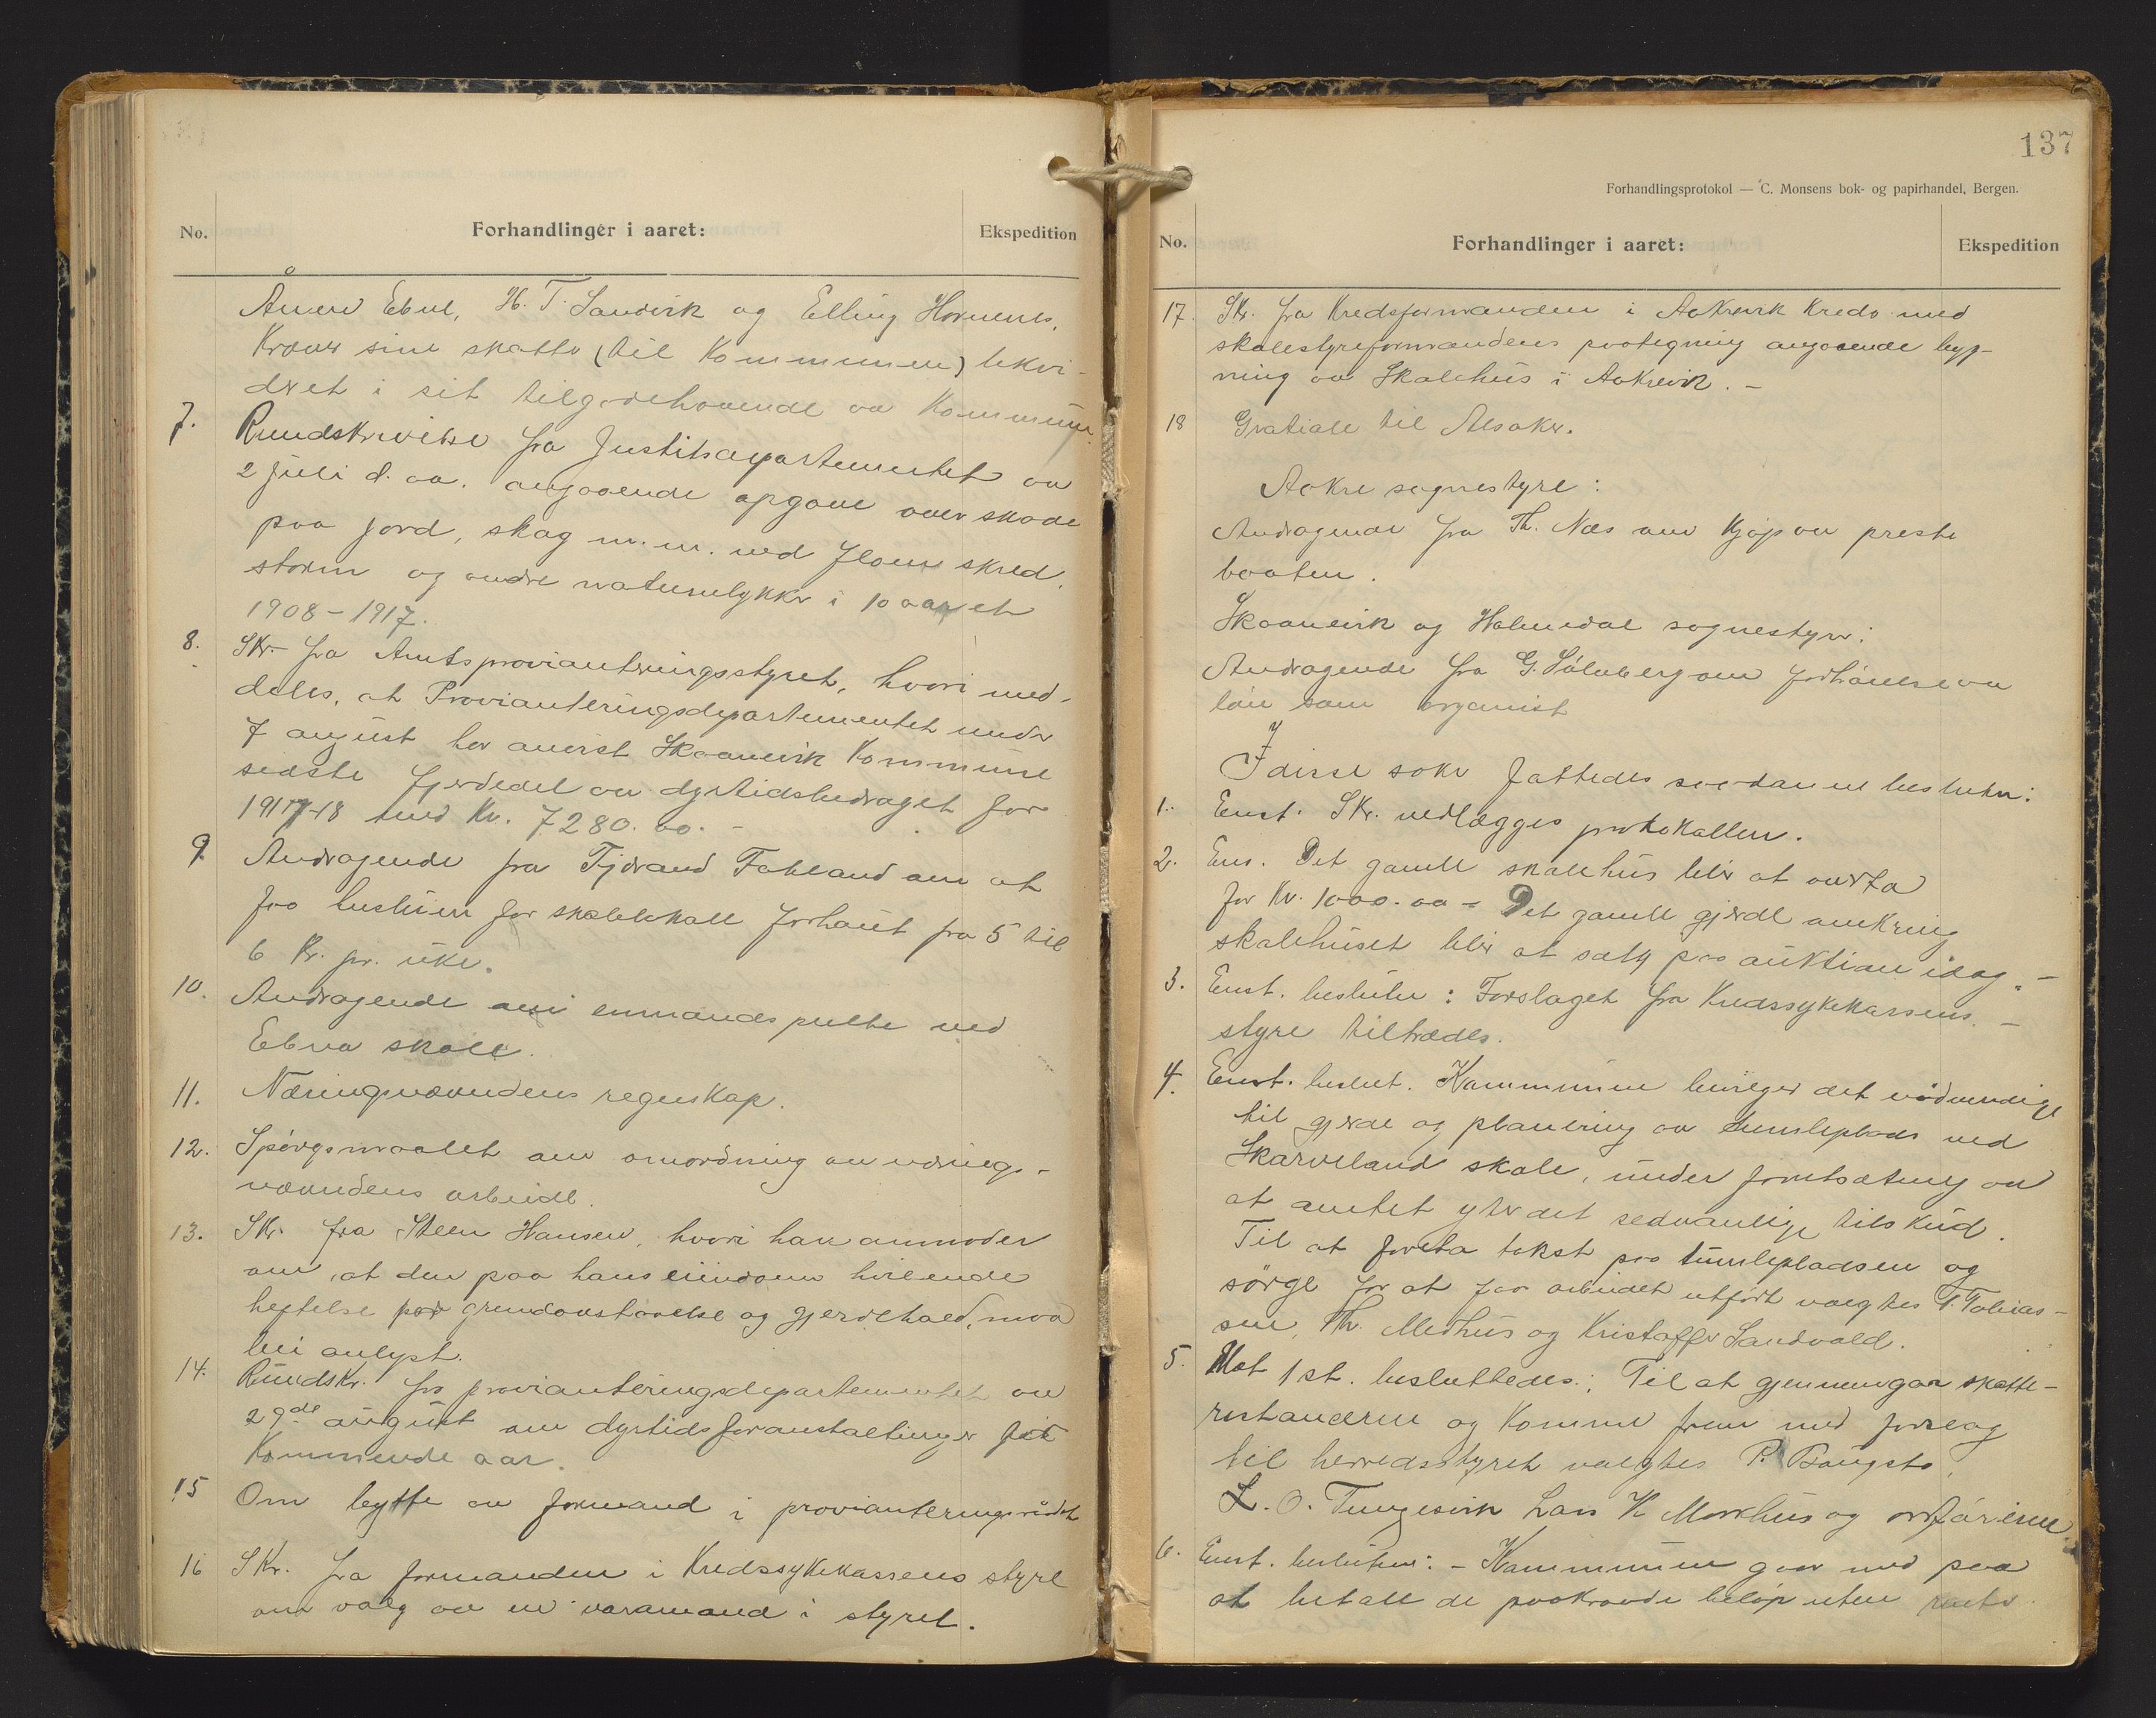 No.
Forhandlinger i aaret:
Ekspedition
Ebne, H. T. Sandvik og Elling Hornenes,
kræver sine skatter (til kommunen) likvi-
dert i sit tilgodehavende av kommun.
7. Rundskrivelse fra Justitsdepartementet av
2 juli d. aa. angaaende opgave over skade
paa jord, skog m. m. ved flom skred,
storm og andre naturulykker i 10 aaret
1908-1917.
8. Skr. fra Amtsprovianteringsstyret, hvori med-
deles, at Provianteringsdepartementet under
7 august har anvist Skaanevik kommune
sidste fjerdedel av dyrtidsbidraget for
1917-18 med Kr. 7280.00.-
9 Andragende fra Tjdrand Fatland om at
faa husleien for skolelokale forhøiet fra 5 til
6 Kr. pr. uke.
10. Andragende om enmandspulte ved
Ebne skole.
11. Næringsnævndens regnskap.
12. Spørgsmaalet om omordning av nærings-
nævndens arbeide.
13. Skr. fra Steen Hansen, hvori han anmoder
om, at den paa hans eiendom hvilende
heftelse paa grundavstaaelse og gjerdehold, maa
bli avlyst.
14. Rundskr. fra provianteringsdepartementet av
29de august om dyrtidsforanstaltninger for
kommende aar.
15 Om bytte av formand i provianteringsraadet
16 Skr. fra formanden i Kredssykekassens styre
om valg av en varamand i styret.
137
Forhandlingsprotokol — C. Monsens bok- og papirhandel, Bergen.
No.
Forhandlinger i aaret:
Ekspedition
17. Skr. fra Kredsformanden i Aakrevik Kreds med
skolestyreformandens paategning angaaende byg-
ning av Skolehus i Aakrevik. -
18 Gratiale til Alsaker.
Aakre sognestyre:
Andragende fra Th. Næs om kjøp av preste
baaten.
Skaanevik og Holmedal sognestyrer:
Andragende fra G. Sølvberg om forhøielse av
løn som organist
I disse saker fattedes saadanne beslutn:
1. Enst. Skr. vedlægges protokollen.
2. Ens. Det gamle skolehus blir at overta
for Kr. 1000.00 - Det gamle gjerde omkring
skolehuset blir at sælge paa auktion idag. -
3. Enst. beslutn: Forslaget fra Kredssykekassens -
styre tiltrædes.
4. Enst. beslut. Kommunen bevilger det nødvendige
til gjerde og planering av tumleplads ved
Skarveland skole, under forutsætning av
at amtet yter det sedvanlige tilskud.
Til at foreta takst paa tumlepladsen og
sørge for at faa arbeidet utført valgtes T. Tobias-
sen, Th. Medhus og Kristoffer Sandvold.
5. Mot 1 st. besluttedes: Til at gjennemgaa skatte-
restancerne og komme frem med forslag
til herredsstyret valgtes P. Baugstø,
L. O. Tungesvik Lars K Markhus og ordføreren.
6. Enst. beslutn: - Kommunen gaar med paa
at betale de paakrævde beløp uten renter.